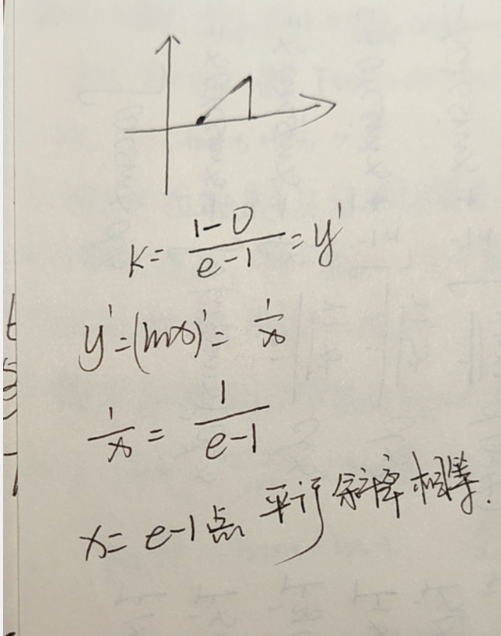 K = \frac{1-0}{e-1} = y'
y' = (lnx)' = \frac{1}{x}
\frac{1}{x} = \frac{1}{e-1}
x = e-1点 平行 斜率相等.